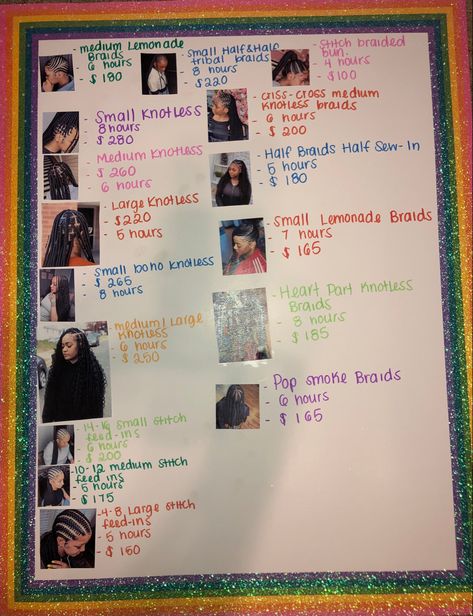 - medium Lemonade
Braids
- 6 hours
- $ 180
- Small Half&Half
tribal braids
- 8 hours
- $220
- Stitch braided
bun.
- 4 hours
- $100
- Small Knotless
- 8 hours
- $ 280
- criss-cross medium
knotless braids
- 6 hours
- $ 200
- Medium Knotless
- $ 260
- 6 hours
- Half Braids Half Sew-In
- 5 hours
- $ 180
- Large Knotless
- $220
- 5 hours
- Small Lemonade Braids
- 7 hours
- $ 165
- Small boho knotless
- $ 265
- 8 hours
- Heart Part Knotless
Braids
- 8 hours
- $ 185
- medium/Large
Knotless
- 6 hours
- $ 250
- Pop smoke Braids
- 6 hours
- $ 165
- 14-16 small stitch
feed-ins
- 6 hours
- $ 200
- 10-12 medium stitch
feed ins
- 5 hours
- $ 175
- 4-8 Large stitch
feed-ins
- 5 hours
- $ 150